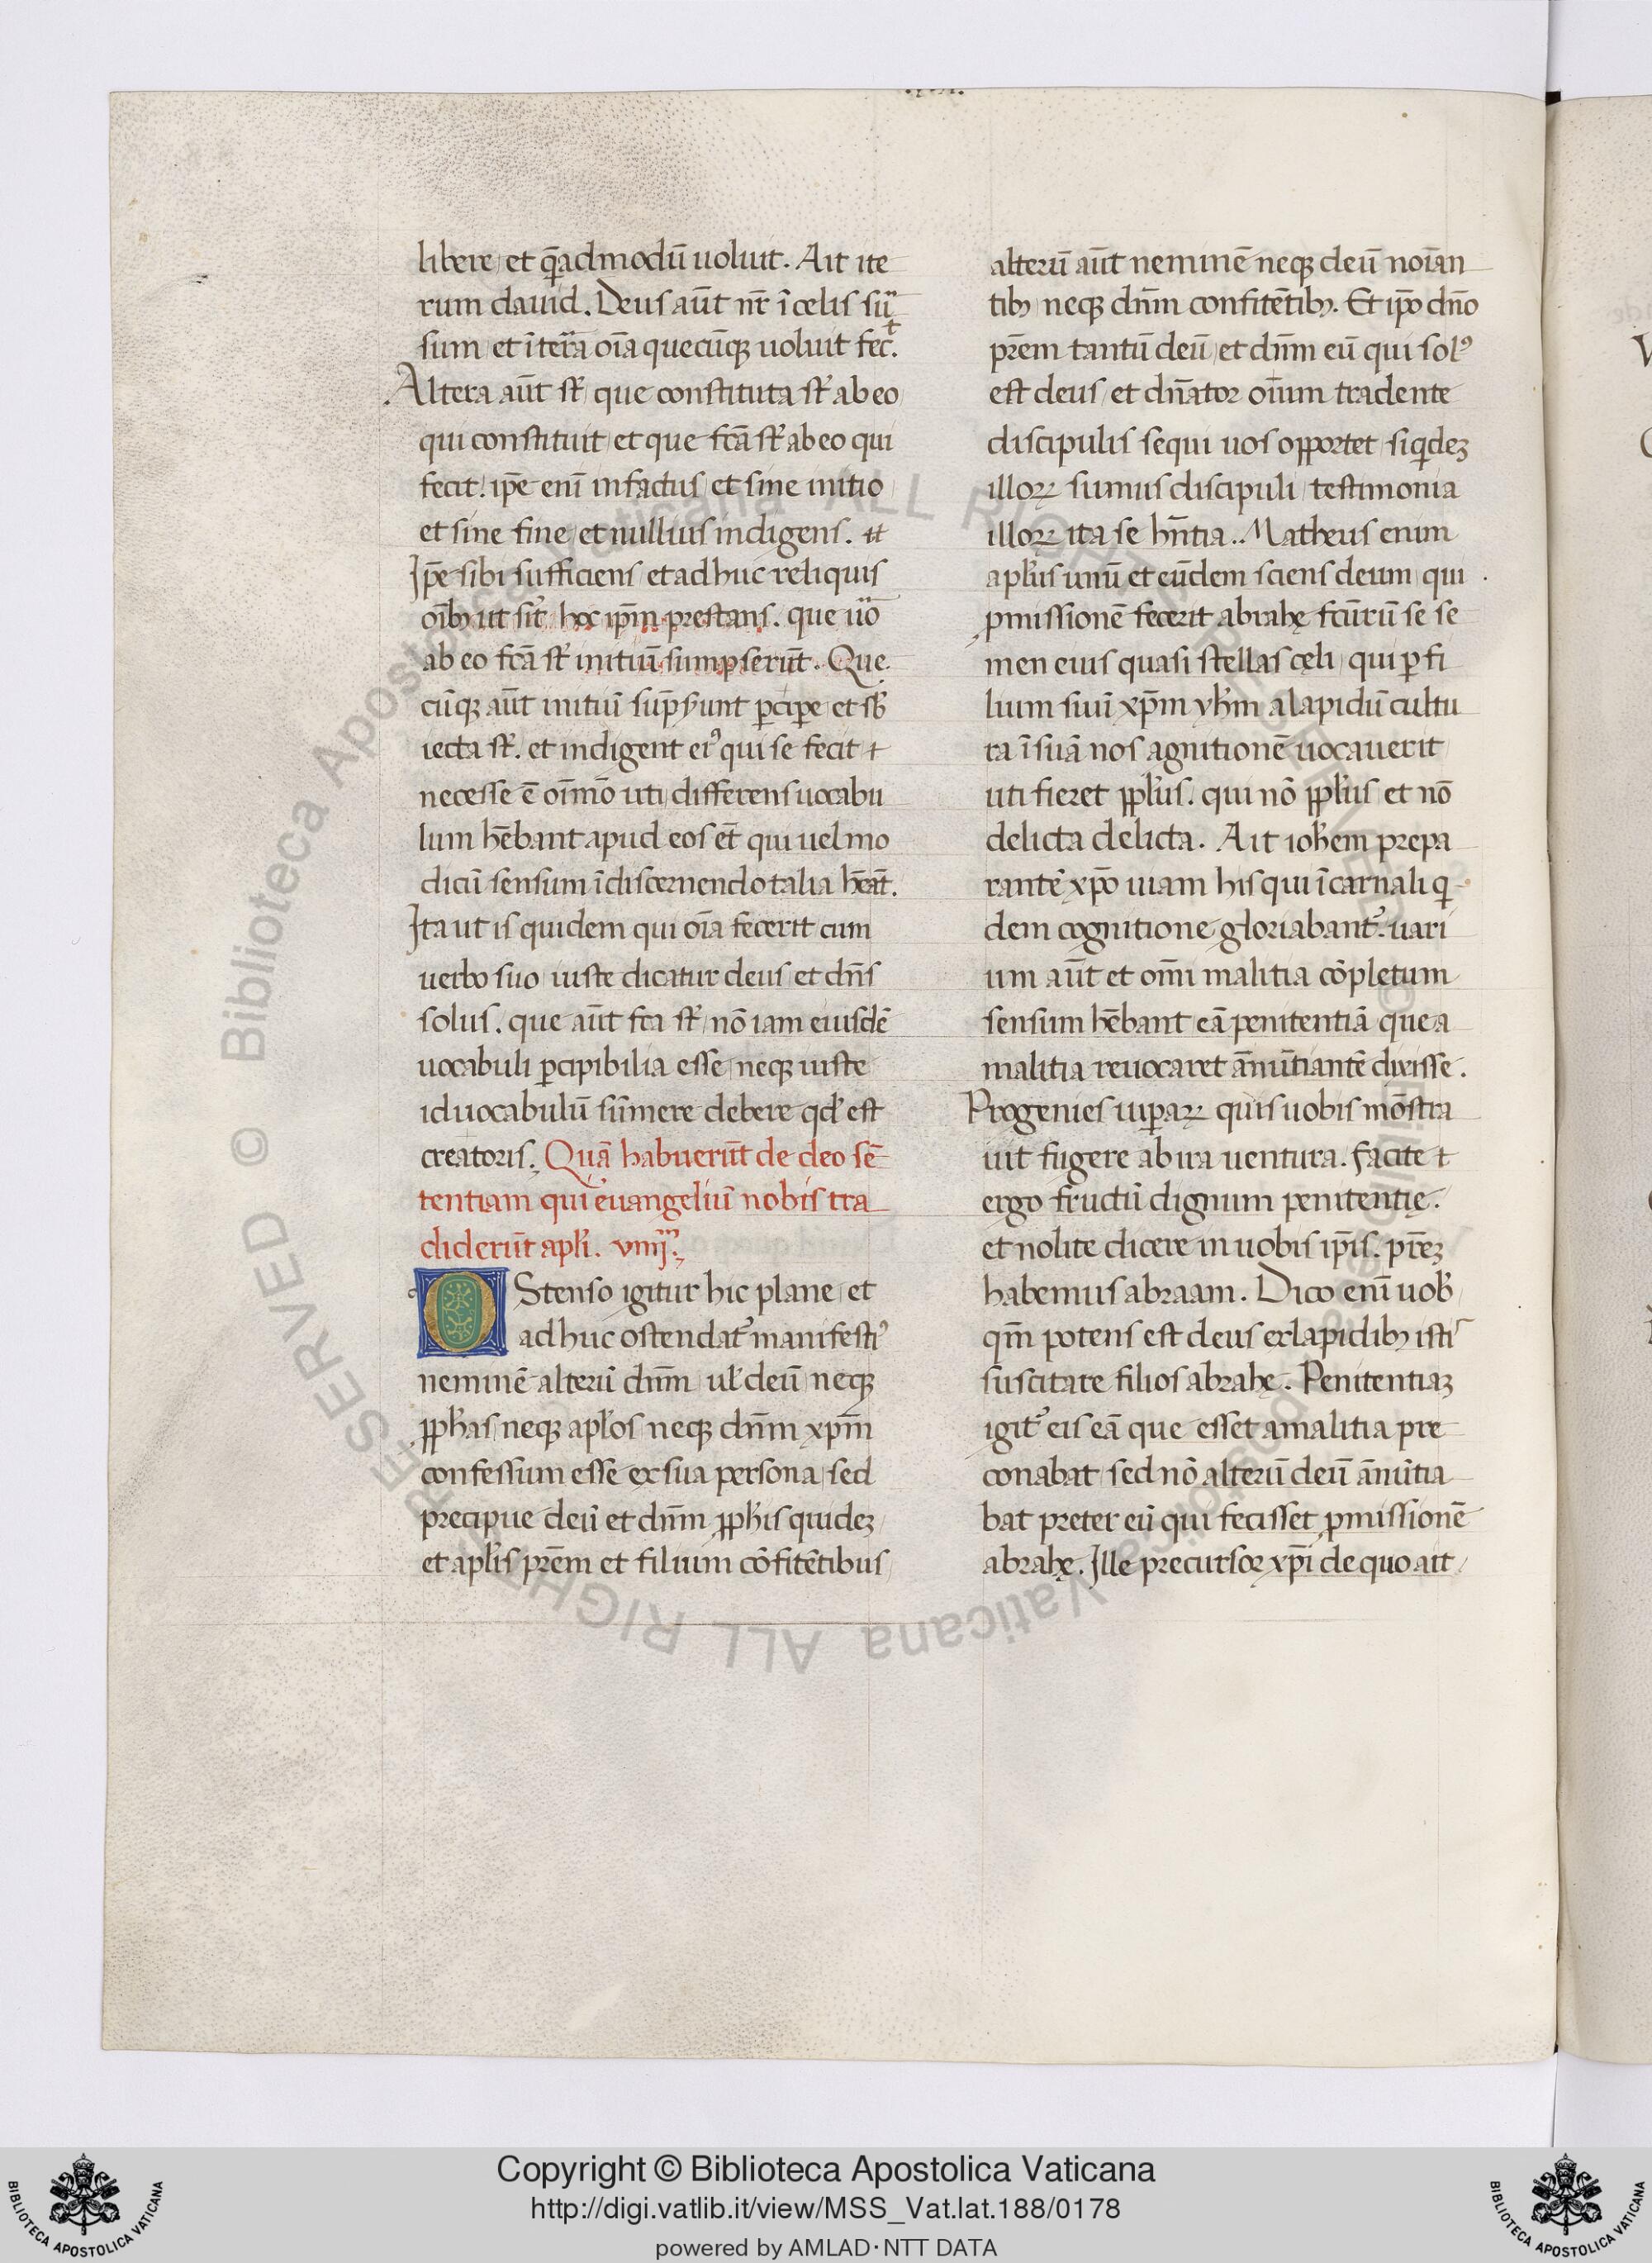 libere et q̄admodū uoluit. Ait ite
rum dauid. Deus aūt nr̄ ī celis sū
sum et ī terra oīa quecūq; uoluit fec̄t.
Altera aūt st̄ que constituta st̄ ab eo
qui constituit et que fcā st̄ ab eo qui
fecit. ip̄e enī infactus et sine initio
et sine fine et nullius indigens. et
Ip̄e sibi sufficiens et adhuc reliquis
oīb; ut sīt hoc ip̄m prestans. que uō
ab eo fcā st̄ initiū sumpserūt. Que
cūq; aūt initiū sūpserunt p̄cipe et sb̄
iecta st̄. et indigent ei⁹ qui se fecit ⁊
necesse ē oīmō uti differens uocabu
lum hēbant apud eos et̄ qui uel mo
dicū sensum ī discernendo talia hēāt.
Ita ut is quidem qui oīa fecerit cum
uerbo suo iuste dicatur deus et dn̄s
solus. que aūt fca st̄ nō iam eiusdē
uocabuli p̄cipibilia esse neq; iuste
id uocabulū sūmere debere qd̄ est
creatoris. Quā habuerūt de deo sē
tentiam qui euangeliū nobis tra
diderūt apl̄i. viiij.
OStenso igitur hic plane et
adhuc ostendat᷑ manifesti⁹
neminē alterū dn̄m ul̄ deū neq;
ꝓph̄as neq; apl̄os neq; dn̄m xp̄m
confessum esse ex sua persona sed
precipue deū et dn̄m ꝓph̄is quidez
et apl̄is pr̄em et filium cōfitētibus
alterū aūt neminē neq; deū noīan
tib; neq; dn̄m confitētib;. Et ip̄o dn̄o
pr̄em tantū deū et dn̄m eū qui sol⁹
est deus et dn̄ator oīum tradente
discipulis sequi uos opportet siq̄dez
illoꝝ sumus discipuli testimonia
illoꝝ ita se hn̄tia.. Matheus enim
apl̄us unū et eūdem sciens deum qui
ꝓmissionē fecerit abrahę fcūrū se se
men eius quasi stellas cęli qui p̱ fi
lium suū xp̄m yh̄m a lapidū cultu
ra ī suā nos agnitionē uocauerit
uti fieret ꝓpl̄us. qui nō ꝓpl̄us et nō
delicta delicta. Ait ioh̄em prepa
rantē xp̄o uiam his qui ī carnali q̄
dem cognitione gloriabant᷑. uari
um aūt et omī malitia cōpletum
sensum hēbant eā penitentiā que a
malitia reuocaret ānūtiantē dixisse.
Progenies uip̱aꝝ quis uobis mōstra
uit fugere ab ira uentura. facite ⁊
ergo fructū dignum penitentię.
et nolite dicere in uobis ip̄is. pr̄ez
habemus abraam. Dico enī uob̄
qm̄ potens est deus ex lapidib; isti
suscitare filios abrahę. Penitentiaz
igit᷑ eis eā que esset a malitia pre
conabat sed nō alterū deū ānūtia
bat preter eū qui fecisset ꝓmissionē
abrahę. Ille precursor xp̄i de quo ait
Copyright © Biblioteca Apostolica Vaticana
http://digi.vatlib.it/view/MSS_Vat.lat.188/0178
powered by AMLAD·NTT DATA
BIBLIOTECA APOSTOLICA VATICANA
BIBLIOTECA APOSTOLICA VATICANA
© Biblioteca Apostolica Vaticana ALL RIGHTS RESERVED
© Biblioteca Apostolica Vaticana ALL RIGHTS RESERVED